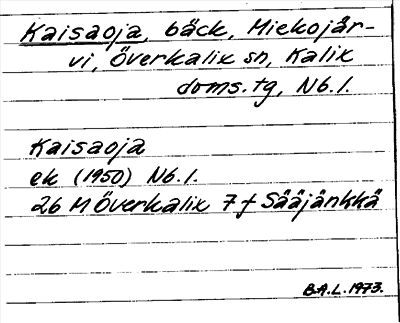 Kaisaoja, bäck, Miekojär-
vi, Överkalix sn, Kalix
doms.tg, Nb.l.
Kaisaoja
ek (1950) Nb.l.
26 M Överkalix 7 f Sääjänkkä
B.A.L. 1973.